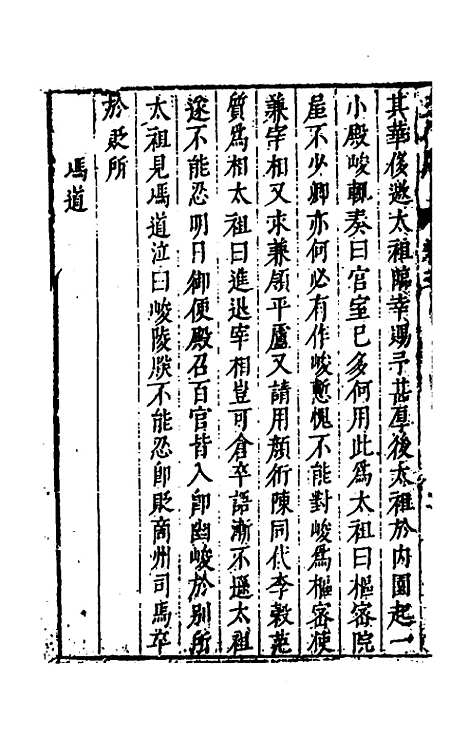 其華侈邀太祖臨幸賜予甚厚後太祖於內園起一
小殿峻輒奏曰官室已多何用此為太祖曰樞密院
屋不少卿亦何必有作峻慙愧不能對峻為樞密使
兼宰相又求兼領平盧又請用顏衎陳同代李穀范
質為相太祖曰進退宰相豈可倉卒語漸不遜太祖
遂不能忍明日御便殿召百官皆入即幽峻於別所
太祖見馮道泣曰峻陵朕不能忍即貶商州司馬卒
於貶所
馮道